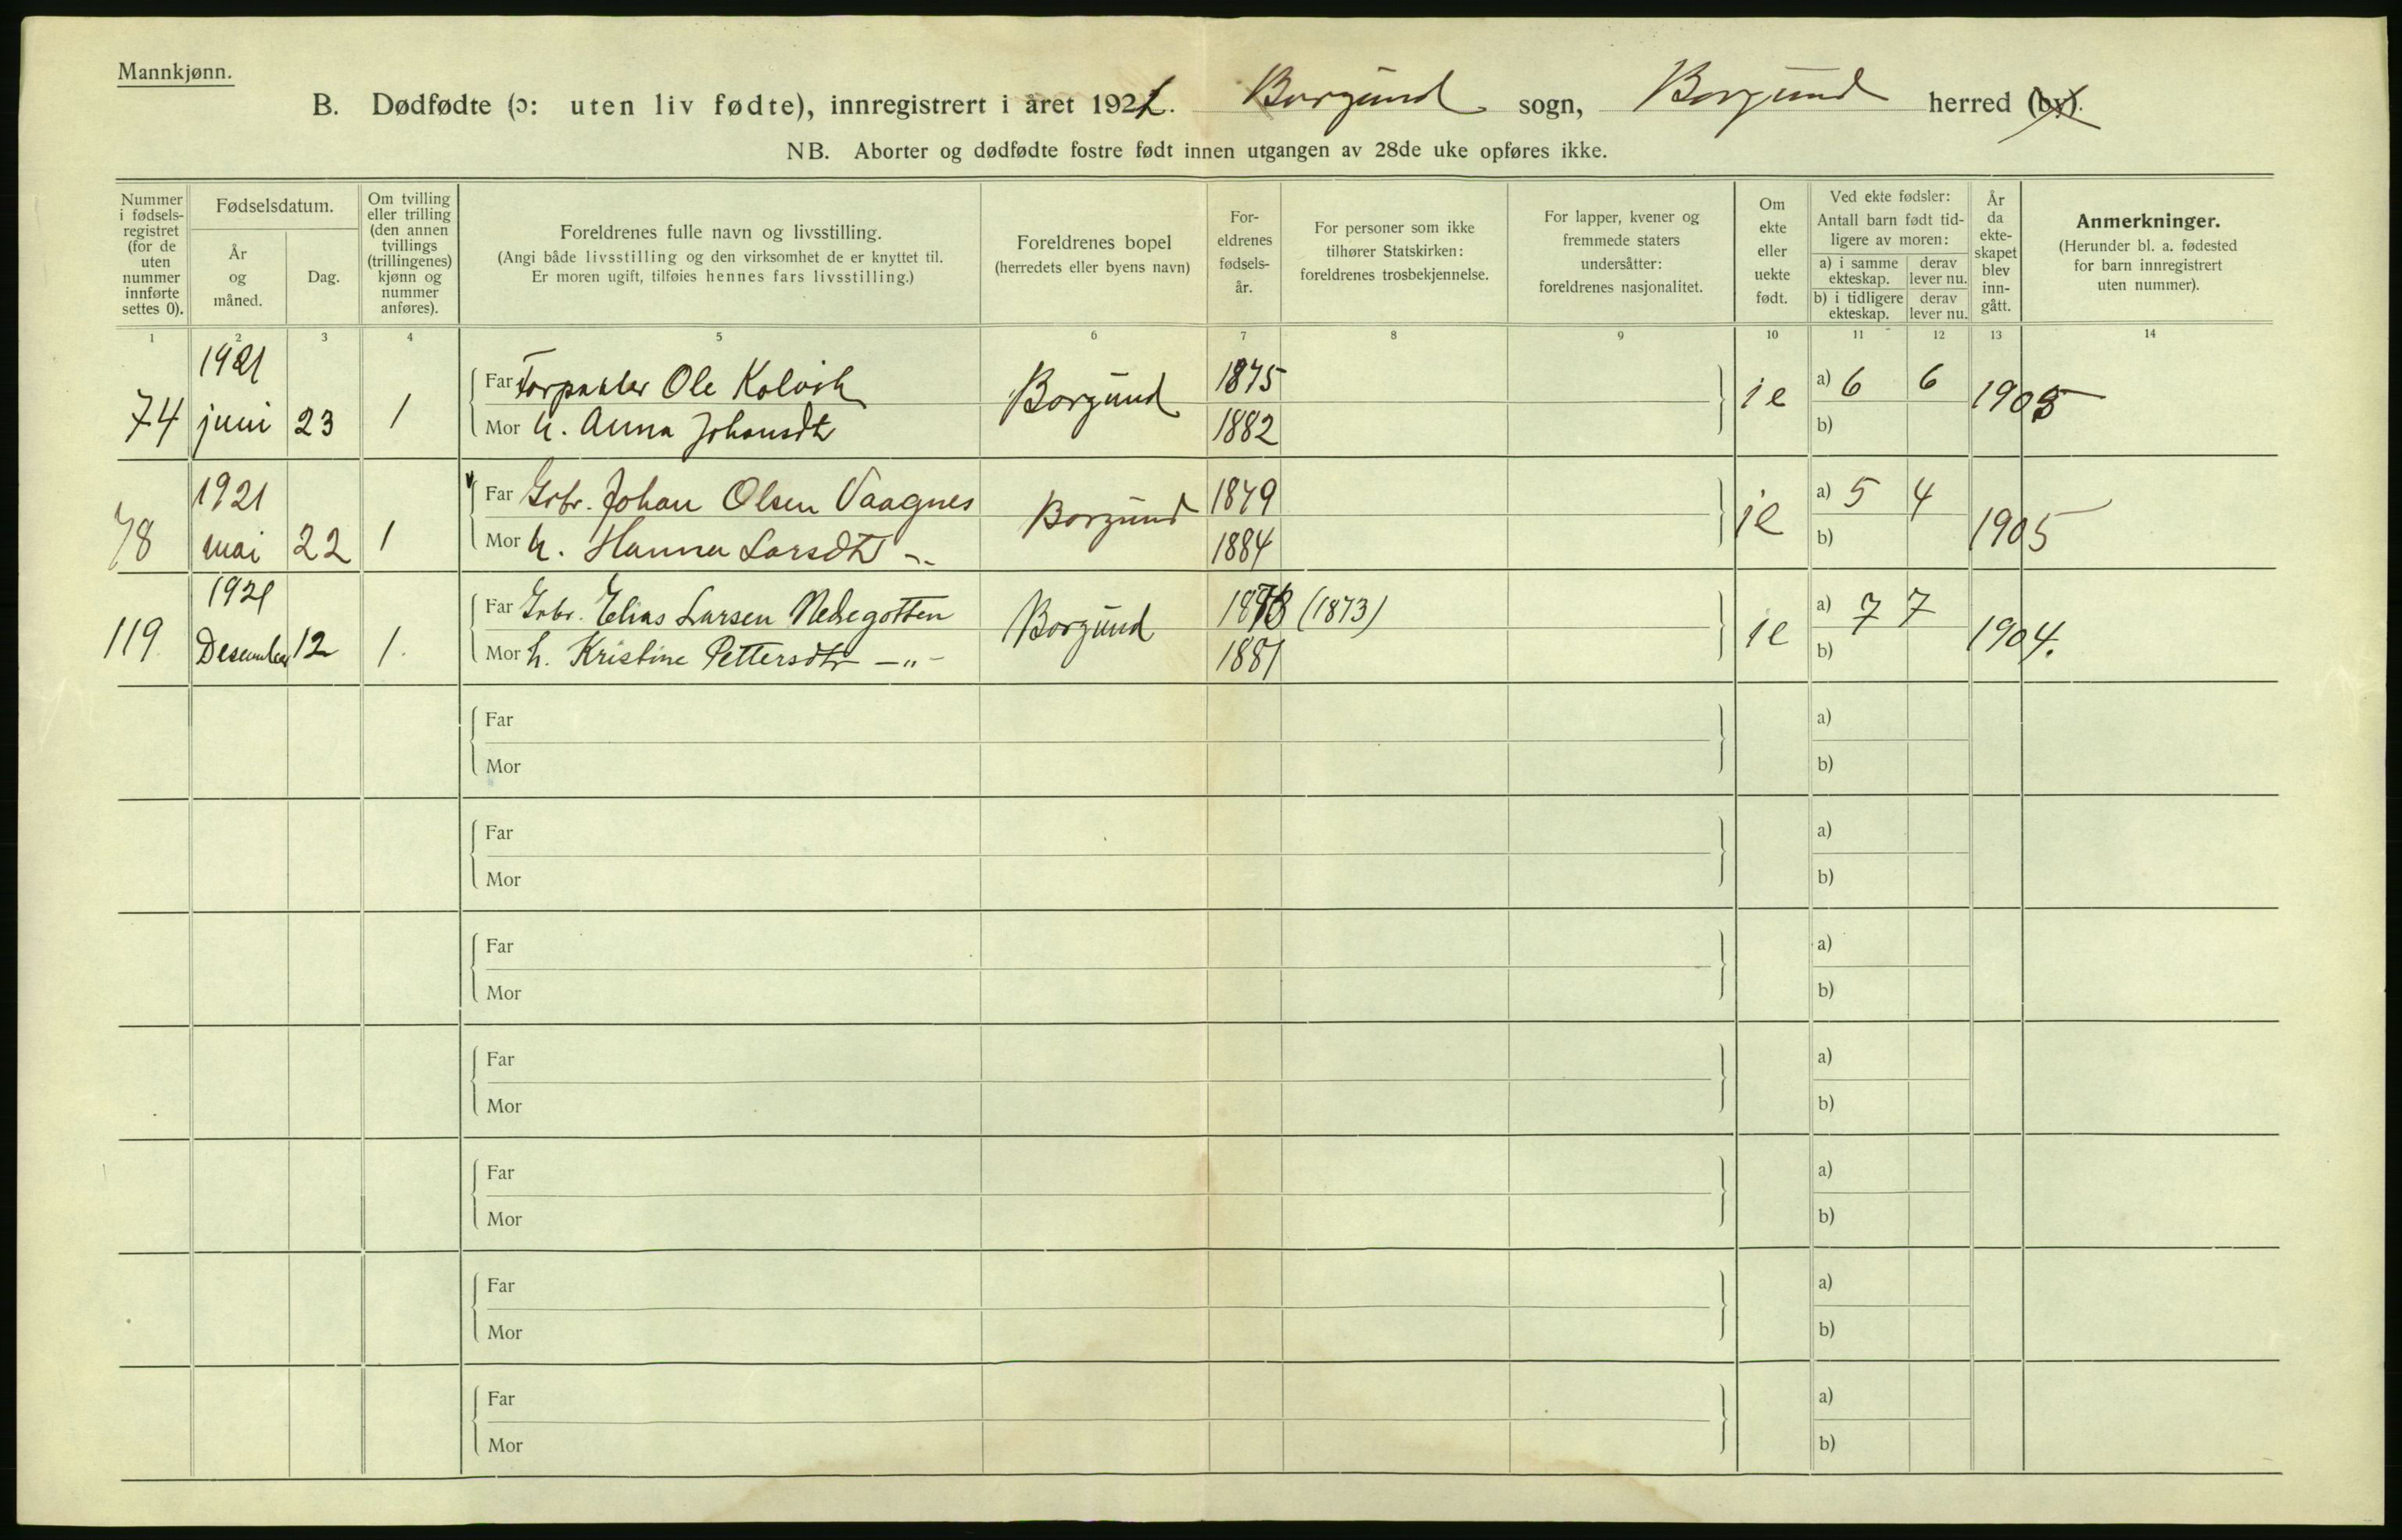 Mannkjønn.
B. Dødfødte (ɔ: uten liv fødte), innregistrert i året 1922. Borgund sogn, Borgund herred (by).
NB. Aborter og dødfødte fostre født innen utgangen av 28de uke opføres ikke.
Nummer i fødsels-registret (for de uten nummer innførte settes 0).
Fødselsdatum.
År og måned.
Dag.
Om tvilling eller trilling (den annen tvillings (trillingenes) kjønn og nummer anføres).
Foreldrenes fulle navn og livsstilling.
(Angi både livsstilling og den virksomhet de er knyttet til.
Er moren ugift, tilføies hennes fars livsstilling.)
Foreldrenes bopel
(herredets eller byens navn)
For-eldrenes fødsels-år.
For personer som ikke tilhører Statskirken: foreldrenes trosbekjennelse.
For lapper, kvener og fremmede staters undersåtter: foreldrenes nasjonalitet.
Om ekte eller uekte født.
Ved ekte fødsler:
Antall barn født tid-ligere av moren:
a) i samme ekteskap. derav lever nu.
b) i tidligere ekteskap. derav lever nu.
År da ekte-skapet blev inn-gått.
Anmerkninger.
(Herunder bl. a. fødested for barn innregistrert uten nummer).
1 2 3 4 5 6 7 8 9 10 11 12 13 14
74 1921 juni 23 1
Far Ole Kolvik Borgund 1875 a) 6 6 1905
Mor h. Anna Johansdtr 1882 b)
78 1921 mai 22 1
Far Grbr. Johan Olsen Vaagnes Borgund 1879 a) 5 4 1905
Mor h. Hanna Larsdtr -"- 1884 b)
119 1921 Desember 12 1.
Far Grbr. Elias Larsen Nedregotten Borgund (1873) a) 7 7 1904.
Mor h. Kristine Pettersdtr -"- 1881 b)
Far a)
Mor b)
Far a)
Mor b)
Far a)
Mor b)
Far a)
Mor b)
Far a)
Mor b)
Far a)
Mor b)
Far a)
Mor b)